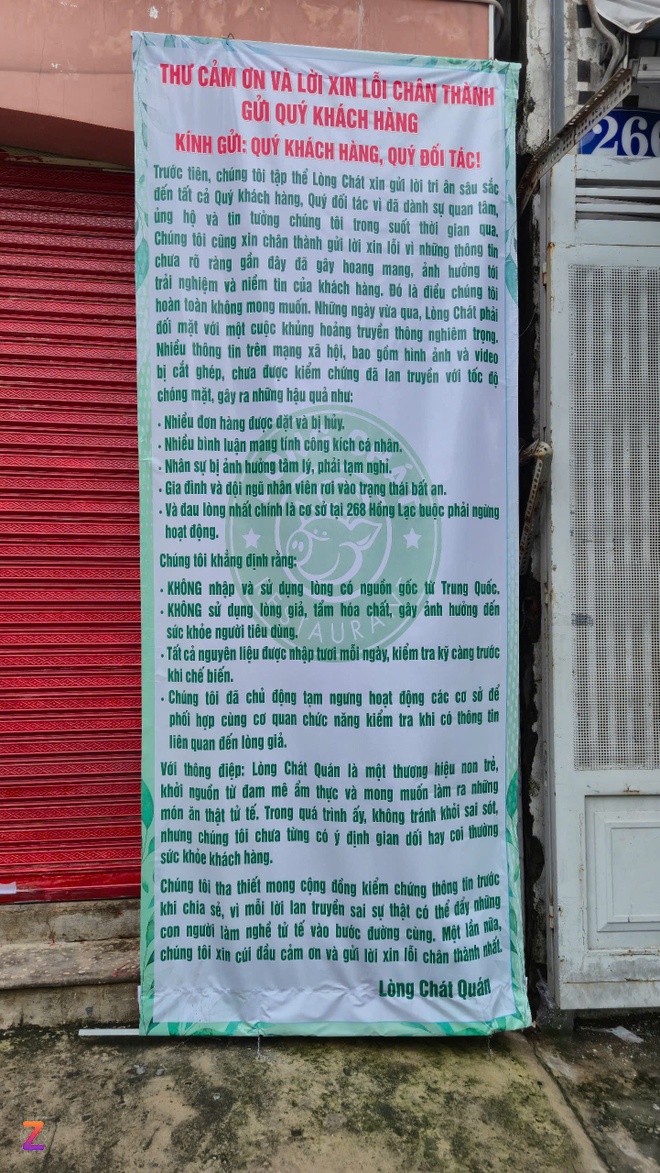 THƯ CẢM ƠN VÀ LỜI XIN LỖI CHÂN THÀNH
GỬI QUÝ KHÁCH HÀNG
KÍNH GỬI: QUÝ KHÁCH HÀNG, QUÝ ĐỐI TÁC!
Trước tiên, chúng tôi tập thể Lòng Chát xin gửi lời tri ân sâu sắc
đến tất cả Quý khách hàng, Quý đối tác vì đã dành sự quan tâm,
ủng hộ và tin tưởng chúng tôi trong suốt thời gian qua.
Chúng tôi cũng xin chân thành gửi lời xin lỗi vì những thông tin
chưa rõ ràng gần đây đã gây hoang mang, ảnh hưởng tới
trải nghiệm và niềm tin của khách hàng. Đó là điều chúng tôi
hoàn toàn không mong muốn. Những ngày vừa qua, Lòng Chát phải
đối mặt với một cuộc khủng hoảng truyền thông nghiêm trọng.
Nhiều thông tin trên mạng xã hội, bao gồm hình ảnh và video
bị cắt ghép, chưa được kiểm chứng đã lan truyền với tốc độ
chóng mặt, gây ra những hậu quả như:
• Nhiều đơn hàng được đặt và bị hủy.
• Nhiều bình luận mang tính công kích cá nhân.
• Nhân sự bị ảnh hưởng tâm lý, phải tạm nghỉ.
• Gia đình và đội ngũ nhân viên rơi vào trạng thái bất an.
• Và đau lòng nhất chính là cơ sở tại 268 Hồng Lạc buộc phải ngừng
hoạt động.
Chúng tôi khẳng định rằng:
• KHÔNG nhập và sử dụng lòng có nguồn gốc từ Trung Quốc.
• KHÔNG sử dụng lòng giả, tẩm hóa chất, gây ảnh hưởng đến
sức khỏe người tiêu dùng.
• Tất cả nguyên liệu được nhập tươi mỗi ngày, kiểm tra kỹ càng trước
khi chế biến.
• Chúng tôi đã chủ động tạm ngưng hoạt động các cơ sở để
phối hợp cùng cơ quan chức năng kiểm tra khi có thông tin
liên quan đến lòng giả.
Với thông điệp: Lòng Chát Quán là một thương hiệu non trẻ,
khởi nguồn từ đam mê ẩm thực và mong muốn làm ra những
món ăn thật tử tế. Trong quá trình ấy, không tránh khỏi sai sót,
nhưng chúng tôi chưa từng có ý định gian dối hay coi thường
sức khỏe khách hàng.
Chúng tôi tha thiết mong cộng đồng kiểm chứng thông tin trước
khi chia sẻ, vì mỗi lời lan truyền sai sự thật có thể đẩy những
con người làm nghề tử tế vào bước đường cùng. Một lần nữa,
chúng tôi xin cúi đầu cảm ơn và gửi lời xin lỗi chân thành nhất.
Lòng Chát Quán
RESTAURANT
266
Z